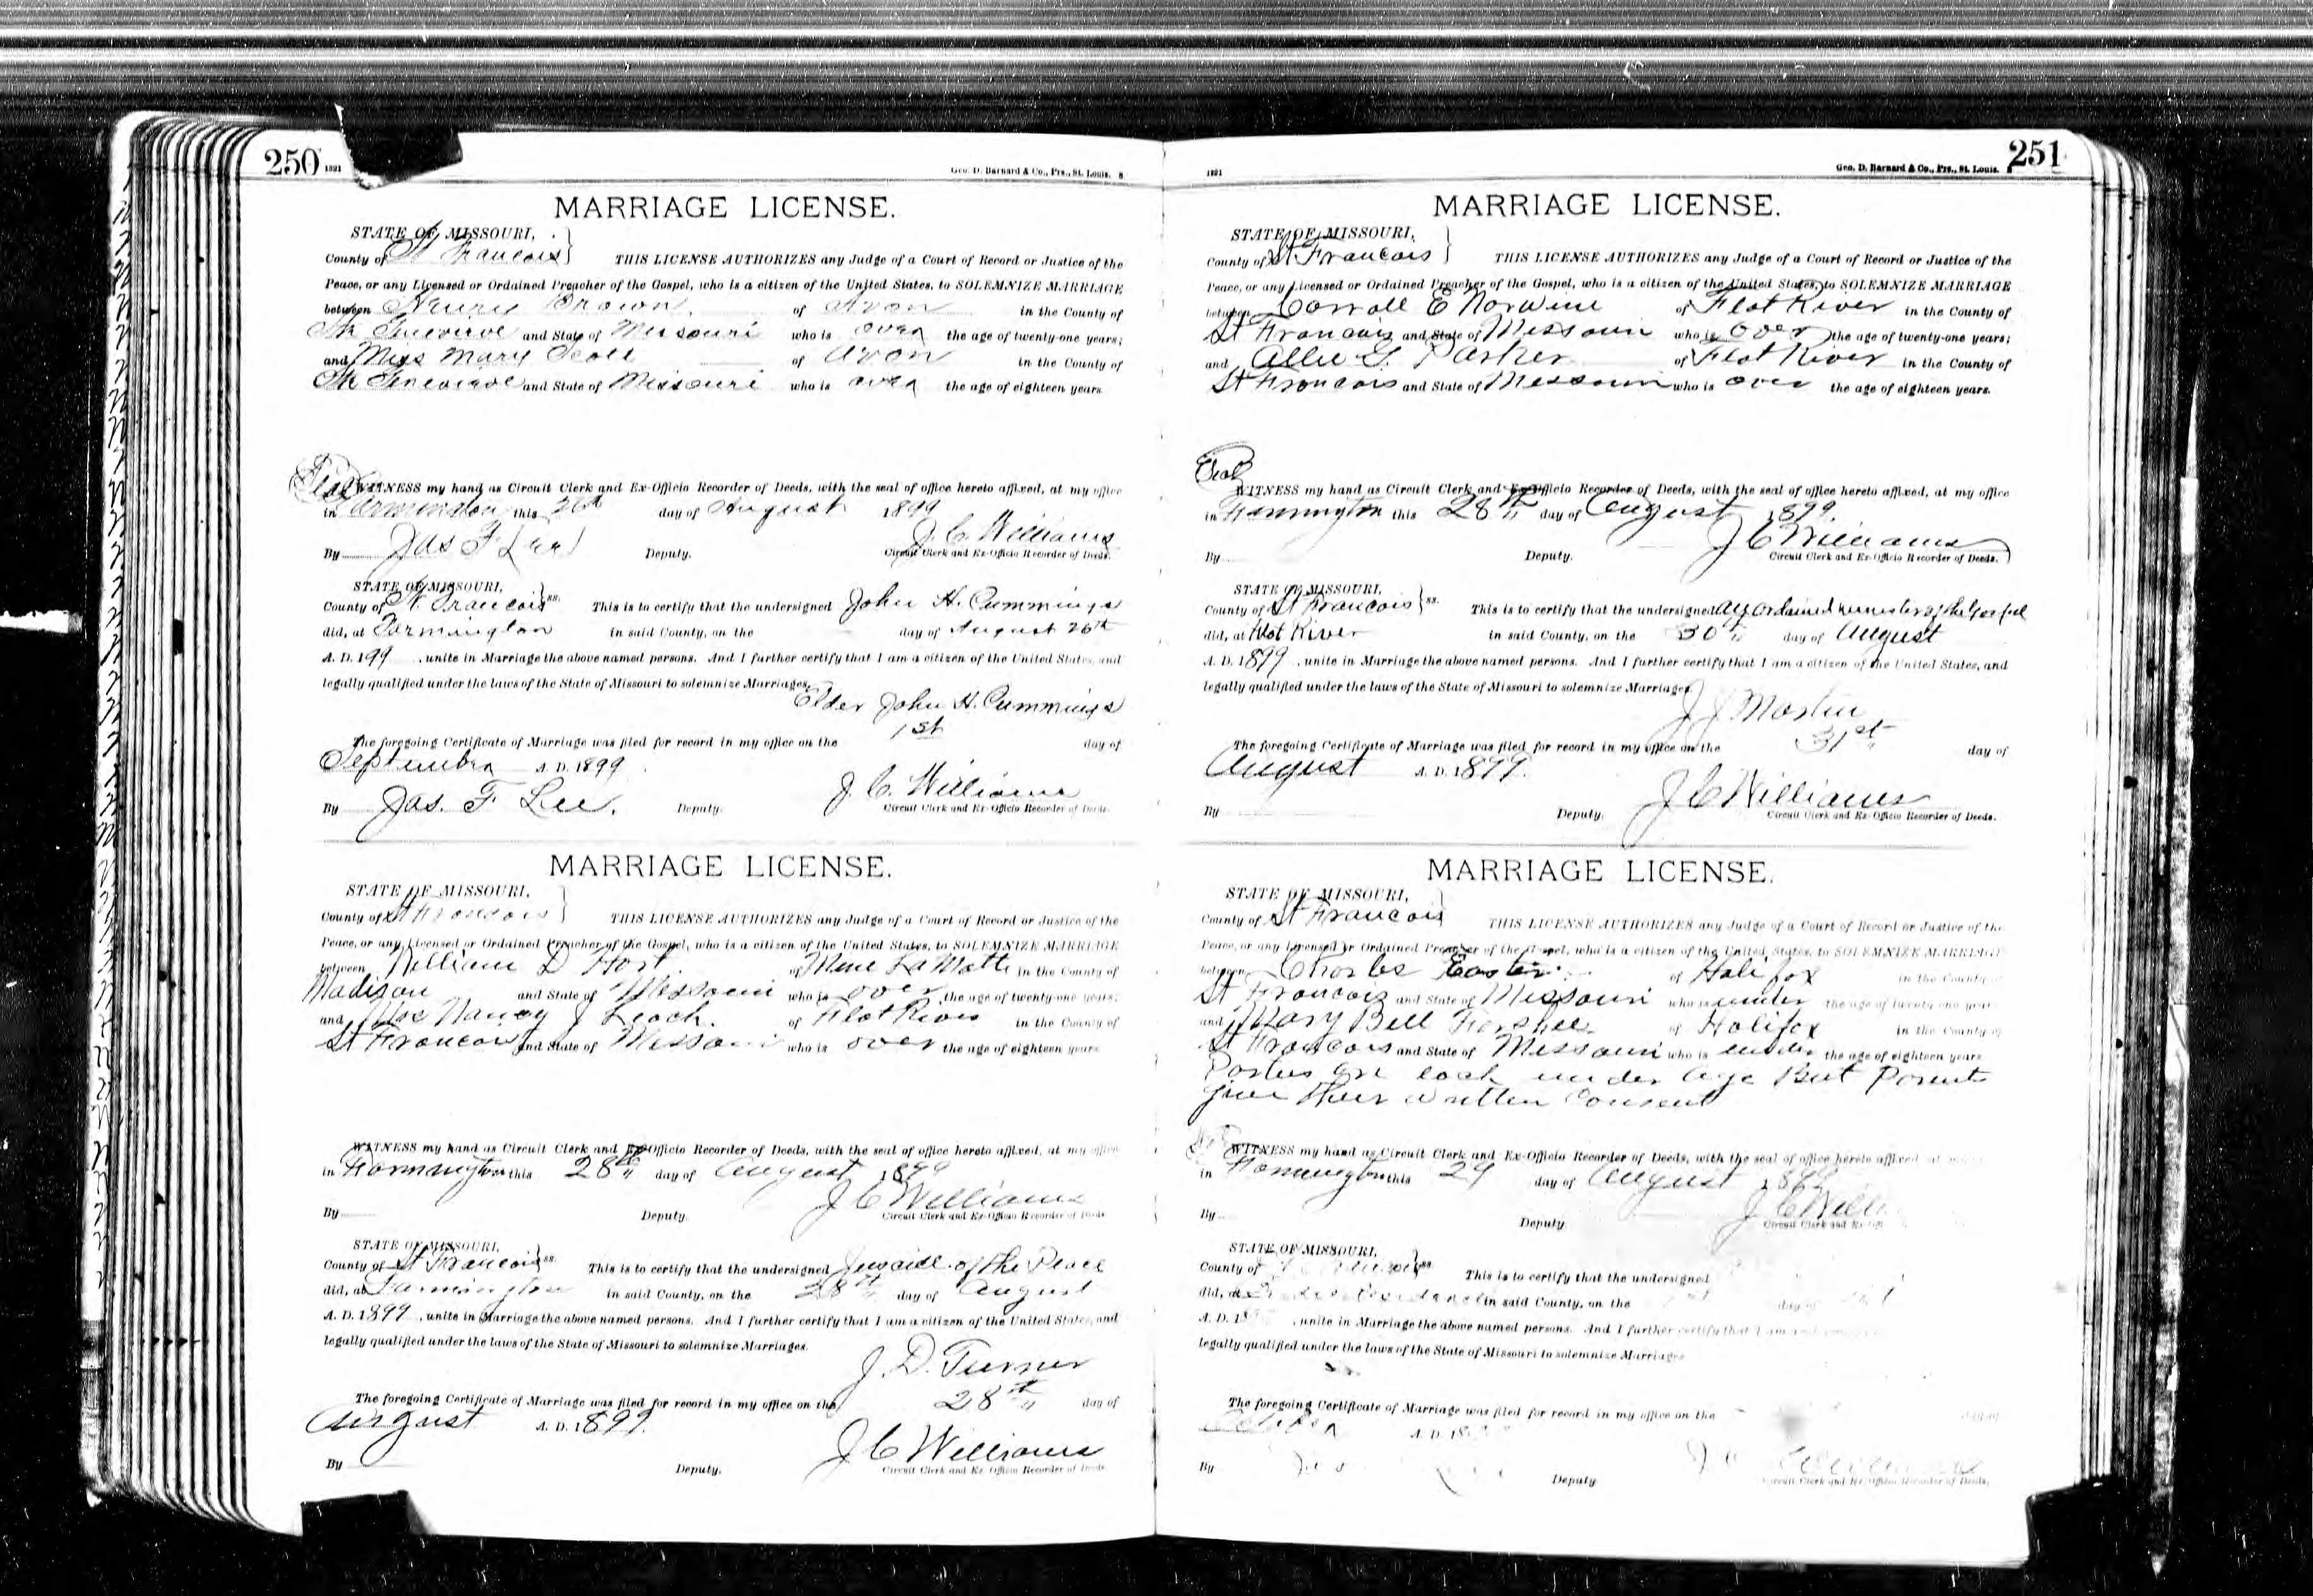 250 1891
Geo. D. Barnard & Co., Prs., St. Louis. 8
MARRIAGE LICENSE.
STATE OF MISSOURI,
County of St Francois } THIS LICENSE AUTHORIZES any Judge of a Court of Record or Justice of the
Peace, or any Licensed or Ordained Preacher of the Gospel, who is a citizen of the United States, to SOLEMNIZE MARRIAGE
between Henry Brown of Avon in the County of
Ste Genevieve and State of Missouri who is over the age of twenty-one years;
and Miss Mary Scott of Avon in the County of
Ste Genevieve and State of Missouri who is over the age of eighteen years.
Seal WITNESS my hand as Circuit Clerk and Ex-Officio Recorder of Deeds, with the seal of office hereto affixed, at my office
in Farmington this day of August 1899
By Jas F Lee Deputy. J. C. Williams
Circuit Clerk and Ex-Officio Recorder of Deeds.
STATE OF MISSOURI,
County of St. Francois } ss. This is to certify that the undersigned John H. Cummings
did, at Farmington in said County, on the day of August 26th
A. D. 199, unite in Marriage the above named persons. And I further certify that I am a citizen of the United States, and
legally qualified under the laws of the State of Missouri to solemnize Marriages.
Elder John H. Cummings
The foregoing Certificate of Marriage was filed for record in my office on the 1st day of
September A. D. 1899.
By Jas. F Lee. Deputy. J. C. Williams
Circuit Clerk and Ex-Officio Recorder of Deeds.
MARRIAGE LICENSE.
STATE OF MISSOURI,
County of St Francois } THIS LICENSE AUTHORIZES any Judge of a Court of Record or Justice of the
Peace, or any Licensed or Ordained Preacher of the Gospel, who is a citizen of the United States, to SOLEMNIZE MARRIAGE
between William D Hort of Mine La Motte in the County of
Madison and State of Missouri who is over the age of twenty-one years;
and Nancy J Leach. of Flat River in the County of
St Francois and State of Missouri who is over the age of eighteen years
WITNESS my hand as Circuit Clerk and Ex-Officio Recorder of Deeds, with the seal of office hereto affixed, at my office
in Farmington this 28th day of August 1899
By Deputy. J C Williams
Circuit Clerk and Ex-Officio Recorder of Deeds
STATE OF MISSOURI,
County of St Francois } ss. This is to certify that the undersigned of the Peace
did, at Farmington in said County, on the 28th day of August
A. D. 1899, unite in Marriage the above named persons. And I further certify that I am a citizen of the United States, and
legally qualified under the laws of the State of Missouri to solemnize Marriages.
J. D. Turner
The foregoing Certificate of Marriage was filed for record in my office on the 28th day of
August A. D. 1899.
By Deputy. J C Williams
Circuit Clerk and Ex-Officio Recorder of Deeds
1891 Geo. D. Barnard & Co., Prs., St. Louis. 251
MARRIAGE LICENSE.
STATE OF MISSOURI,
County of St Francois } THIS LICENSE AUTHORIZES any Judge of a Court of Record or Justice of the
Peace, or any Licensed or Ordained Preacher of the Gospel, who is a citizen of the United States, to SOLEMNIZE MARRIAGE
between Carroll E Norwine of Flat River in the County of
St Francois and State of Missouri who is over the age of twenty-one years;
and Allie G. Parker of Flat River in the County of
St Francois and State of Missouri who is over the age of eighteen years.
Seal
WITNESS my hand as Circuit Clerk and Ex-Officio Recorder of Deeds, with the seal of office hereto affixed, at my office
in Farmington this 28th day of August 1899.
By Deputy. J C Williams
Circuit Clerk and Ex-Officio Recorder of Deeds.
STATE OF MISSOURI,
County of St Francois } ss. This is to certify that the undersigned Ordained minister of the Gospel
did, at Flat River in said County, on the 30th day of August
A. D. 1899, unite in Marriage the above named persons. And I further certify that I am a citizen of the United States, and
legally qualified under the laws of the State of Missouri to solemnize Marriages.
J J Martin
The foregoing Certificate of Marriage was filed for record in my office on the 31st day of
August A. D. 1899.
By Deputy. J C Williams
Circuit Clerk and Ex-Officio Recorder of Deeds.
MARRIAGE LICENSE.
STATE OF MISSOURI,
County of St Francois } THIS LICENSE AUTHORIZES any Judge of a Court of Record or Justice of the
Peace, or any Licensed or Ordained Preacher of the Gospel, who is a citizen of the United States, to SOLEMNIZE MARRIAGE
between Charles Easter of Halifax in the County
St Francois and State of Missouri who is under the age of twenty one years
and Mary Bell of Halifax in the County of
St Francois and State of Missouri who is under the age of eighteen years
Parties are each under age But Parents
give their written Consent
WITNESS my hand as Circuit Clerk and Ex-Officio Recorder of Deeds, with the seal of office hereto affixed at my
in Farmington this 29 day of August 1899
By Deputy. J C Willi
Circuit Clerk and Ex-Offi
STATE OF MISSOURI,
County of ss. This is to certify that the undersigned
did, at in said County, on the day of
A. D. 18 , unite in Marriage the above named persons. And I further certify that I am
legally qualified under the laws of the State of Missouri to solemnize Marriages
The foregoing Certificate of Marriage was filed for record in my office on the day of
A. D. 18
By Deputy
Circuit Clerk and Ex-Officio Recorder of Deeds.